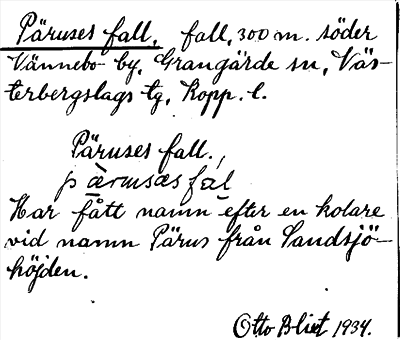 Päruses fall. fall, 300 m. söder
Vännebo by, Grangärde sn, Väs-
terbergslags tg, Kopp. l.
Päruses fall.,
Har fått namn efter en kolare
vid namn Pärus från Sandsjö-
höjden.
Otto Blixt 1934.